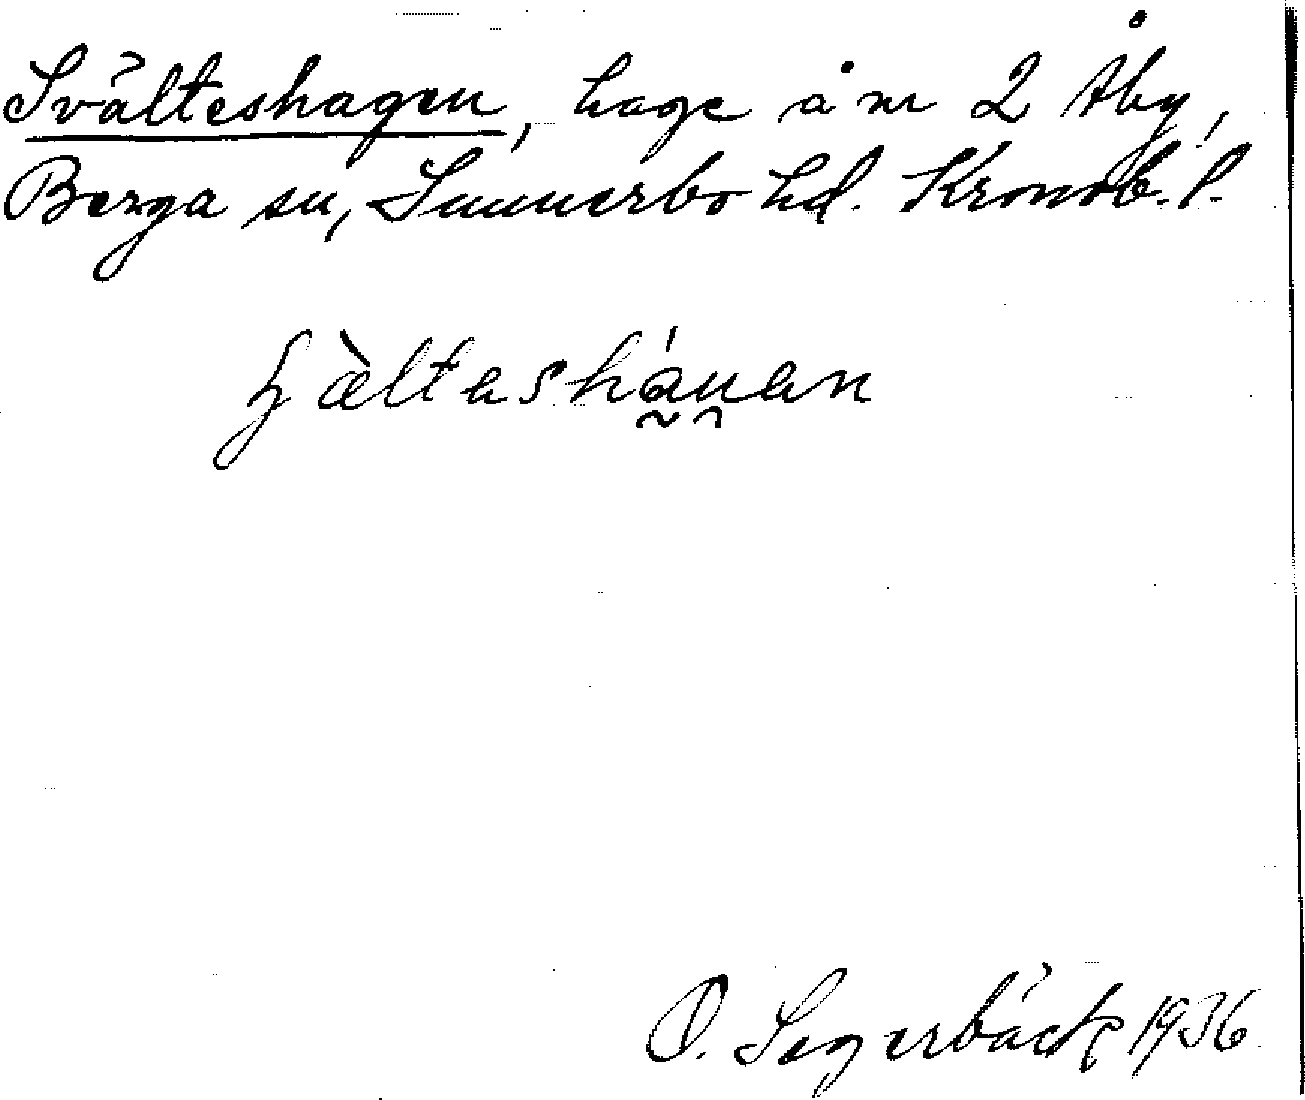 Svälteshagen, hage å nr 2 Åby,
Berga sn, Sunnerbo hd. Kronob. l.
O. Segerbäck 1936